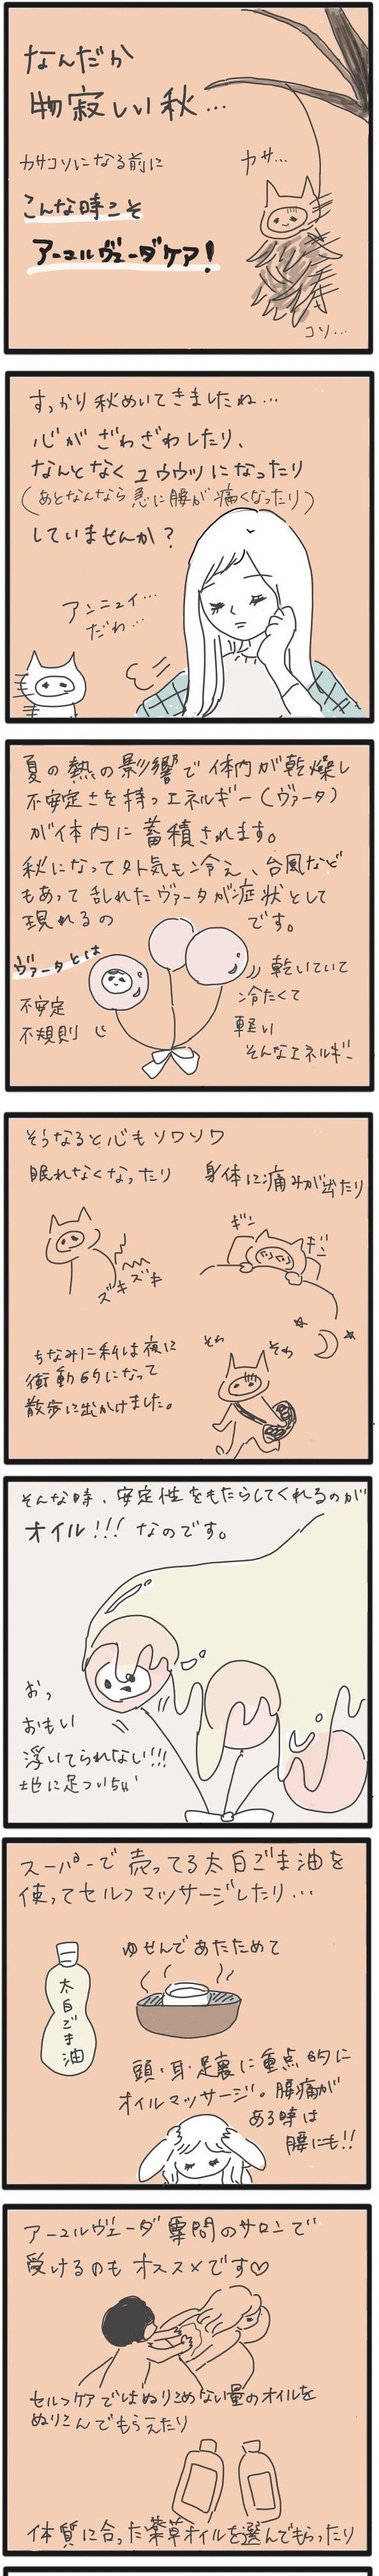 なんだか
物寂しい秋…
カサコソになる前に
こんな時こそ
アーユルヴェーダケア!
カサ…
コソ…
すっかり秋めいてきましたね…
心がざわざわしたり、
なんとなくユウウツになったり
(あとなんなら急に腰が痛くなったり)
していませんか?
アンニュイ…
だわ…
夏の熱の影響で体内が乾燥し
不安定さを持つエネルギー(ヴァータ)
が体内に蓄積されます。
秋になって外気も冷え、台風など
もあって乱れたヴァータが症状として
現れるのです。
ヴァータとは
不安定
不規則
乾いていて
冷たくて
軽い
そんなエネルギー
そうなると心もソワソワ
眠れなくなったり
身体に痛みが出たり
ズキズキ
ギン
ギン
ちなみに私は夜に
衝動的になって
散歩に出かけました。
そわ
そわ
そんな時、安定性をもたらしてくれるのが
オイル!!!なのです。
おっ
おもい
浮いてられない!!!
地に足ついちゃう
スーパーで売ってる太白ごま油を
使ってセルフマッサージしたり…
ゆせんであたためて
太白ごま油
頭・耳・足裏に重点的に
オイルマッサージ。腰痛が
ある時は
腰にも!!
アーユルヴェーダ専門のサロンで
受けるのもオススメです♡
セルフケアではぬりこめない量のオイルを
ぬりこんでもらえたり
体質に合った薬草オイルを選んでもらったり